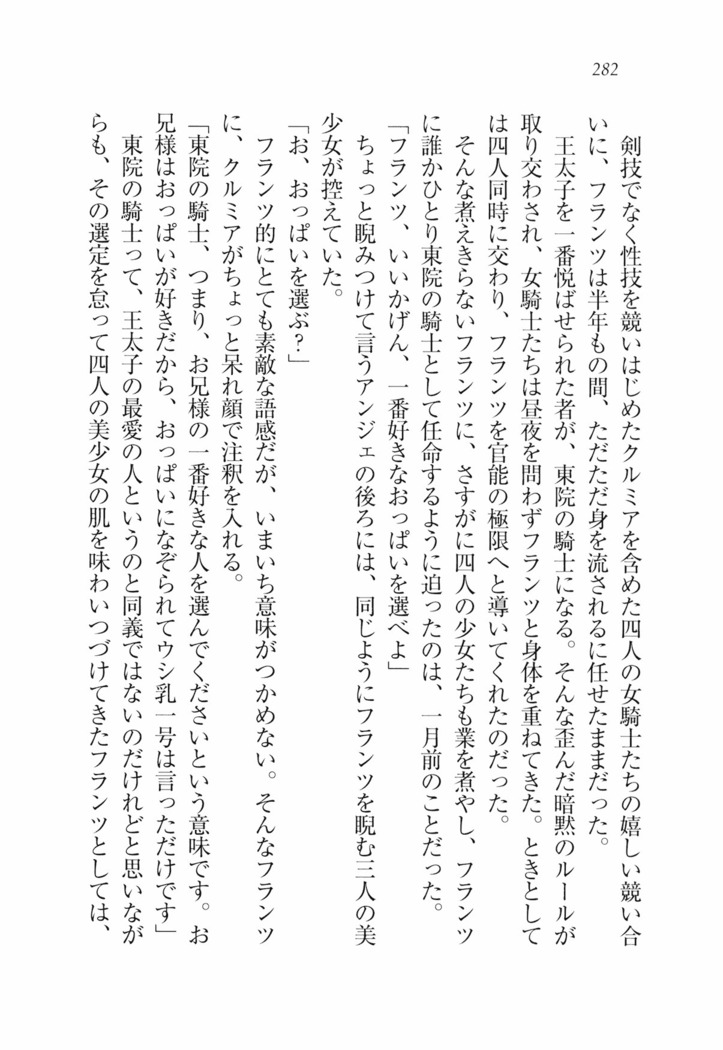 282
剣技でなく性技を競いはじめたクルミアを含めた四人の女騎士たちの嬉しい競い合
いに、フランツは半年もの間、ただただ身を流されるに任せたままだった。
王太子を一番悦ばせられた者が、東院の騎士になる。そんな歪んだ暗黙のルールが
取り交わされ、女騎士たちは昼夜を問わずフランツと身体を重ねてきた。ときとして
は四人同時に交わり、フランツを官能の極限へと導いてくれたのだった。
そんな煮えきらないフランツに、さすがに四人の少女たちも業を煮やし、フランツ
に誰かひとり東院の騎士として任命するように迫ったのは、一月前のことだった。
「フランツ、いいかげん、一番好きなおっぱいを選べよ」
ちょっと睨みつけて言うアンジェの後ろには、同じようにフランツを睨む三人の美
少女が控えていた。
「お、おっぱいを選ぶ？」
フランツ的にとても素敵な語感だが、いまいち意味がつかめない。そんなフランツ
に、クルミアがちょっと呆れ顔で注釈を入れる。
「東院の騎士、つまり、お兄様の一番好きな人を選んでくださいという意味です。お
兄様はおっぱいが好きだから、おっぱいになぞられてウシ乳一号は言っただけです」
東院の騎士って、王太子の最愛の人というのと同義ではないのだけれどと思いなが
らも、その選定を怠って四人の美少女の肌を味わいつづけてきたフランツとしては、